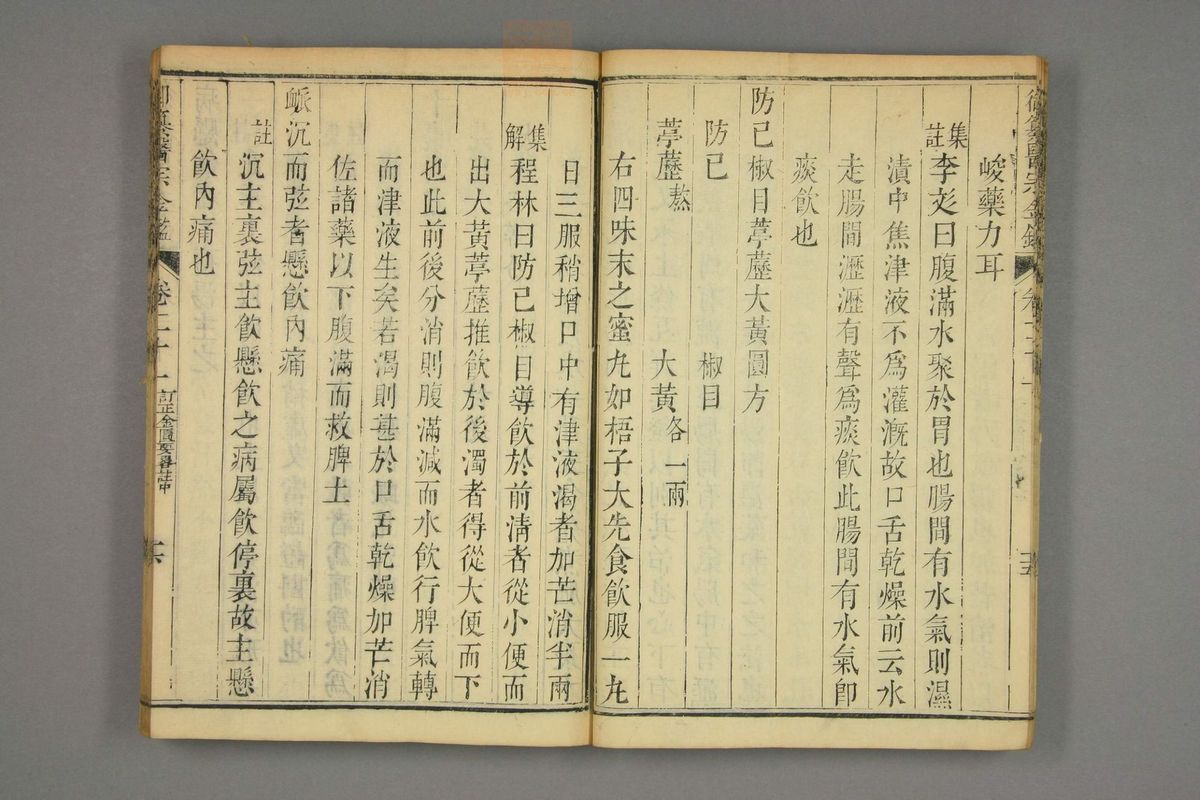 御纂醫宗金鑑
峻藥力耳
集註李彣曰腹滿水聚於胃也腸間有水氣則濕
漬中焦津液不爲灌漑故口舌乾燥前云水
走腸間瀝瀝有聲爲痰飮此腸間有水氣卽
痰飮也
防己椒目葶藶大黃圓方
防己 椒目
葶藶熬 大黃各一兩
右四味末之蜜九如梧子大先食飮服一九
日三服稍增口中有津液渴者加芒消半兩
集解程林曰防己椒目導飮於前淸者從小便而
出大黃葶藶推飮於後濁者得從大便而下
也此前後分消則腹滿減而水飮行脾氣轉
而津液生矣若渴則甚於口舌乾燥加芒消
佐諸藥以下腹滿而救脾土
脈沉而弦者懸飮內痛
註沉主裏弦主飮懸飮之病屬飮停裏故主懸
飮內痛也
醫宗金鑑 卷二十一 訂正金匱要畧註中